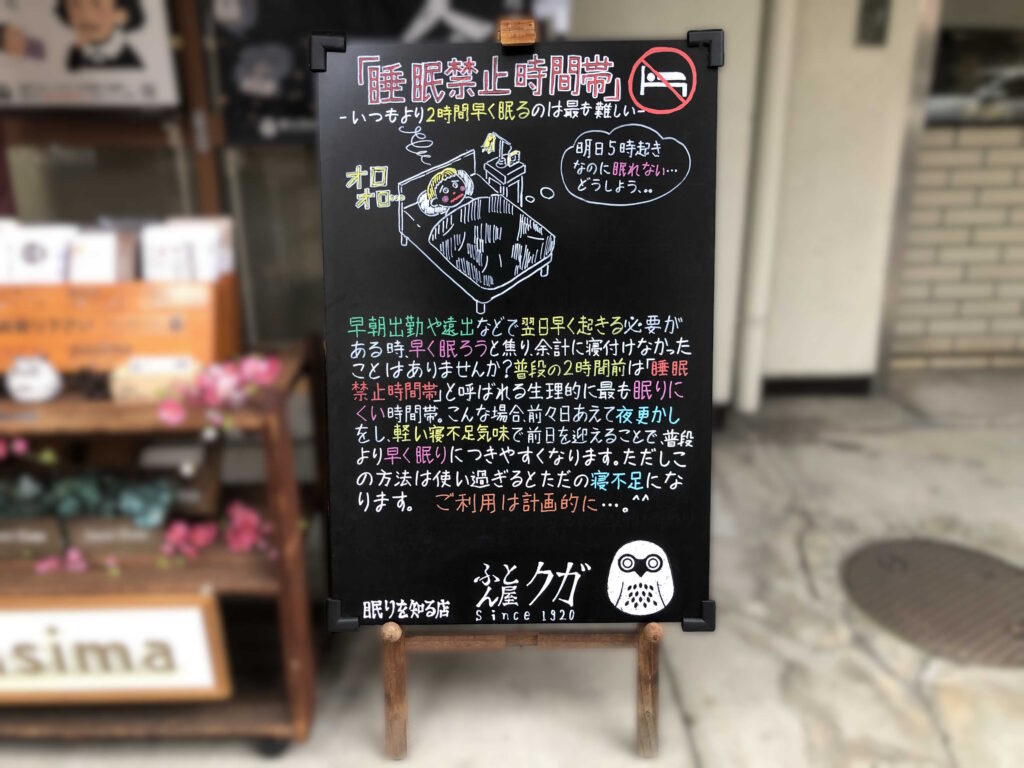 「睡眠禁止時間帯」
-いつもより2時間早く眠るのは最も難しい-
明日5時起き
なのに眠れない…
どうしよう…
オロ
オロ…
早朝出勤や遠出などで翌日早く起きる必要が
ある時、早く眠ろうと焦り、余計に寝付けなかった
ことはありませんか?普段の2時間前は「睡眠
禁止時間帯」と呼ばれる生理的に最も眠りに
くい時間帯。こんな場合、前々日あえて夜更かし
をし、軽い寝不足気味で前日を迎えることで、普段
より早く眠りにつきやすくなります。ただしこ
の方法は使い過ぎるとただの寝不足にな
ります。 ご利用は計画的に…。^^
眠りを知る店
ふとん屋 クガ
Since 1920
sima